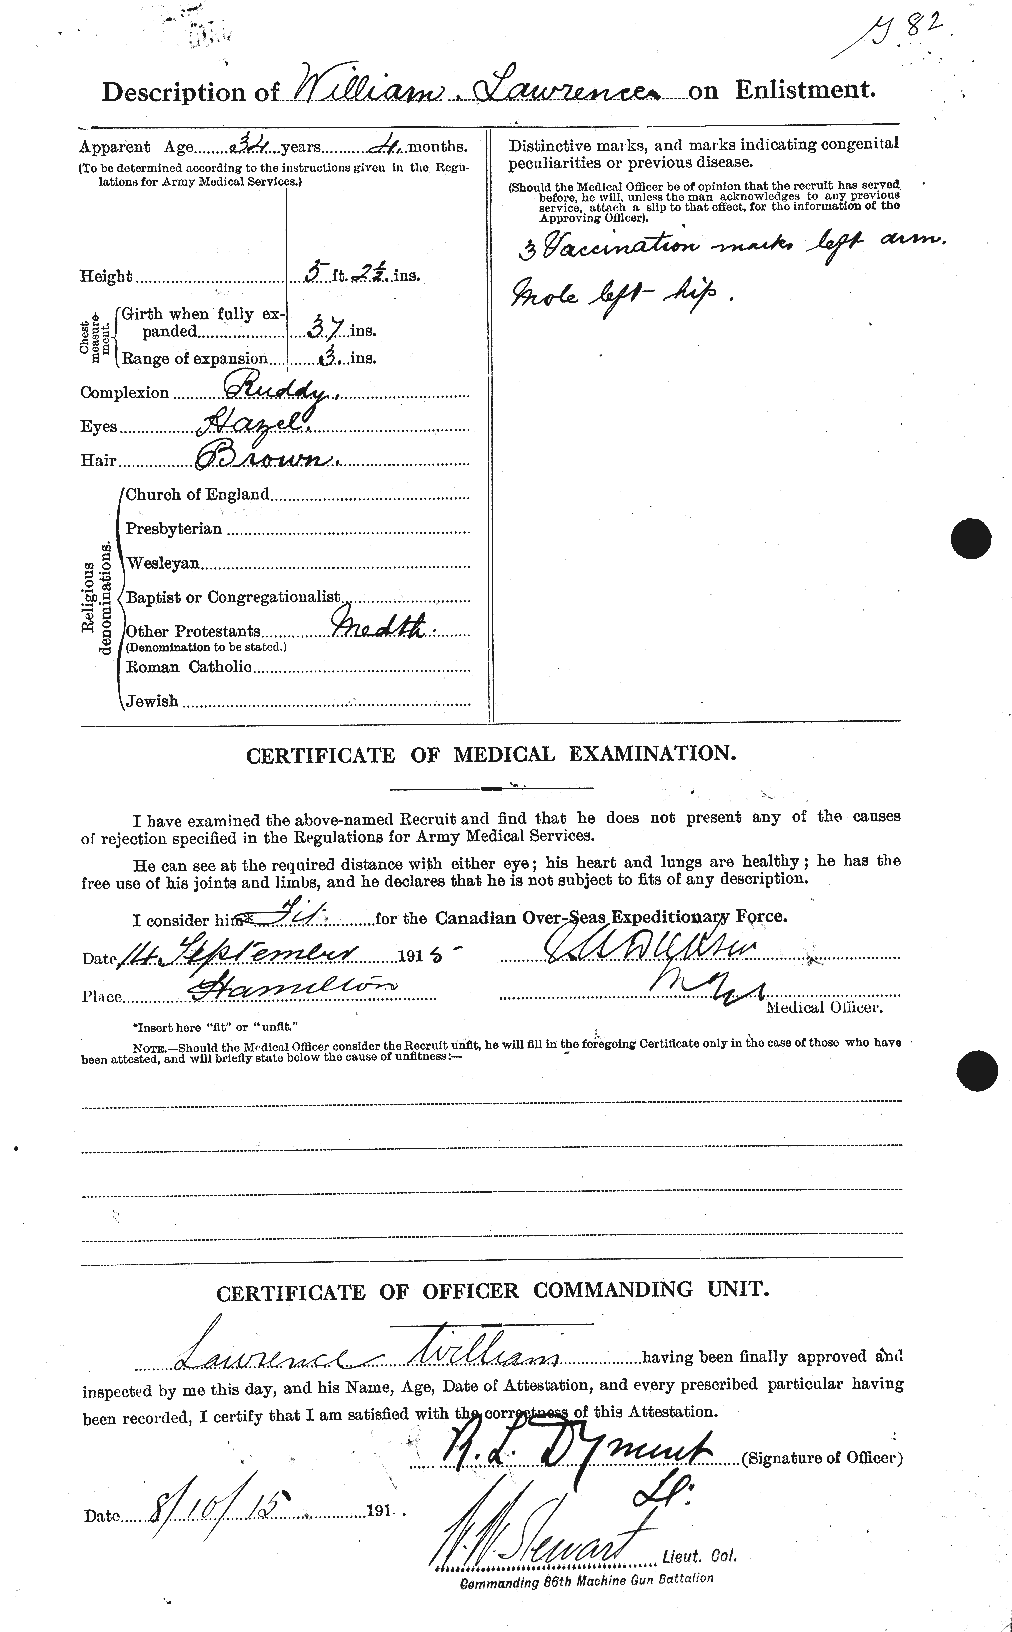 82
Description of William Lawrence on Enlistment.
Apparent Age 34 years 4 months.
(To be determined according to the instructions given in the Regu-
lations for Army Medical Services.)
Height 5 ft. 2½ ins.
Chest measure-ment.
Girth when fully ex-
panded 37 ins.
Range of expansion 3 ins.
Complexion Ruddy.
Eyes Hazel.
Hair Brown.
Religious denominations.
Church of England
Presbyterian
Wesleyan
Baptist or Congregationalist
Other Protestants Medth.
(Denomination to be stated.)
Roman Catholic
Jewish
Distinctive marks, and marks indicating congenital
peculiarities or previous disease.
(Should the Medical Officer be of opinion that the recruit has served
before, he will, unless the man acknowledges to any previous
service, attach a slip to that effect, for the information of the
Approving Officer).
3 Vaccination marks left arm.
Mole left hip.
CERTIFICATE OF MEDICAL EXAMINATION.
I have examined the above-named Recruit and find that he does not present any of the causes
of rejection specified in the Regulations for Army Medical Services.
He can see at the required distance with either eye; his heart and lungs are healthy; he has the
free use of his joints and limbs, and he declares that he is not subject to fits of any description.
I consider him* Fit. for the Canadian Over-Seas Expeditionary Force.
Date 14. September 1915
Place Hamilton
Medical Officer.
*Insert here "fit" or "unfit."
NOTE.—Should the Medical Officer consider the Recruit unfit, he will fill in the foregoing Certificate only in the case of those who have
been attested, and will briefly state below the cause of unfitness:—
CERTIFICATE OF OFFICER COMMANDING UNIT.
Lawrence William having been finally approved and
inspected by me this day, and his Name, Age, Date of Attestation, and every prescribed particular having
been recorded, I certify that I am satisfied with the correctness of this Attestation.
R. L. Dyment (Signature of Officer)
Lt.
Date 8/10/15 191
W. W. Stewart Lieut. Col.
Commanding 86th Machine Gun Battalion